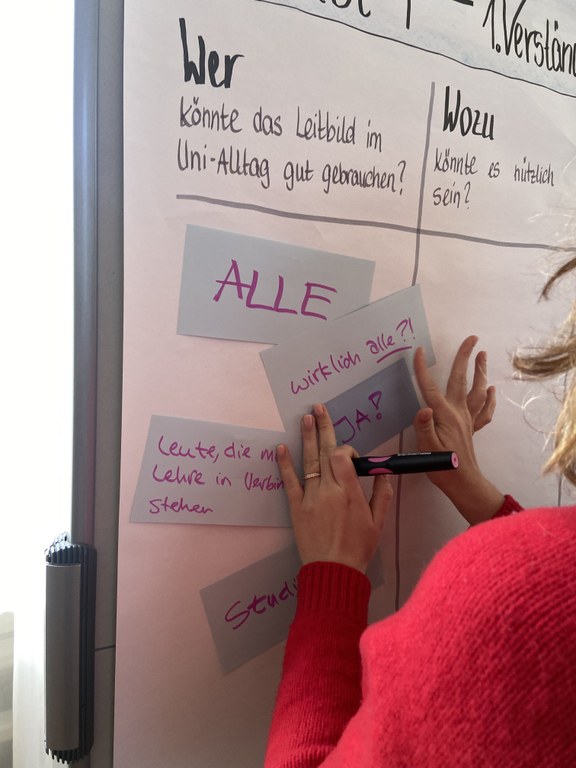 1. Verstän
Wer
könnte das Leitbild im
Uni-Alltag gut gebrauchen?
Wozu
könnte es nützlich
sein?
ALLE
wirklich alle?!
JA!
Leute, die
Lehre in Verbin
stehen
Studi